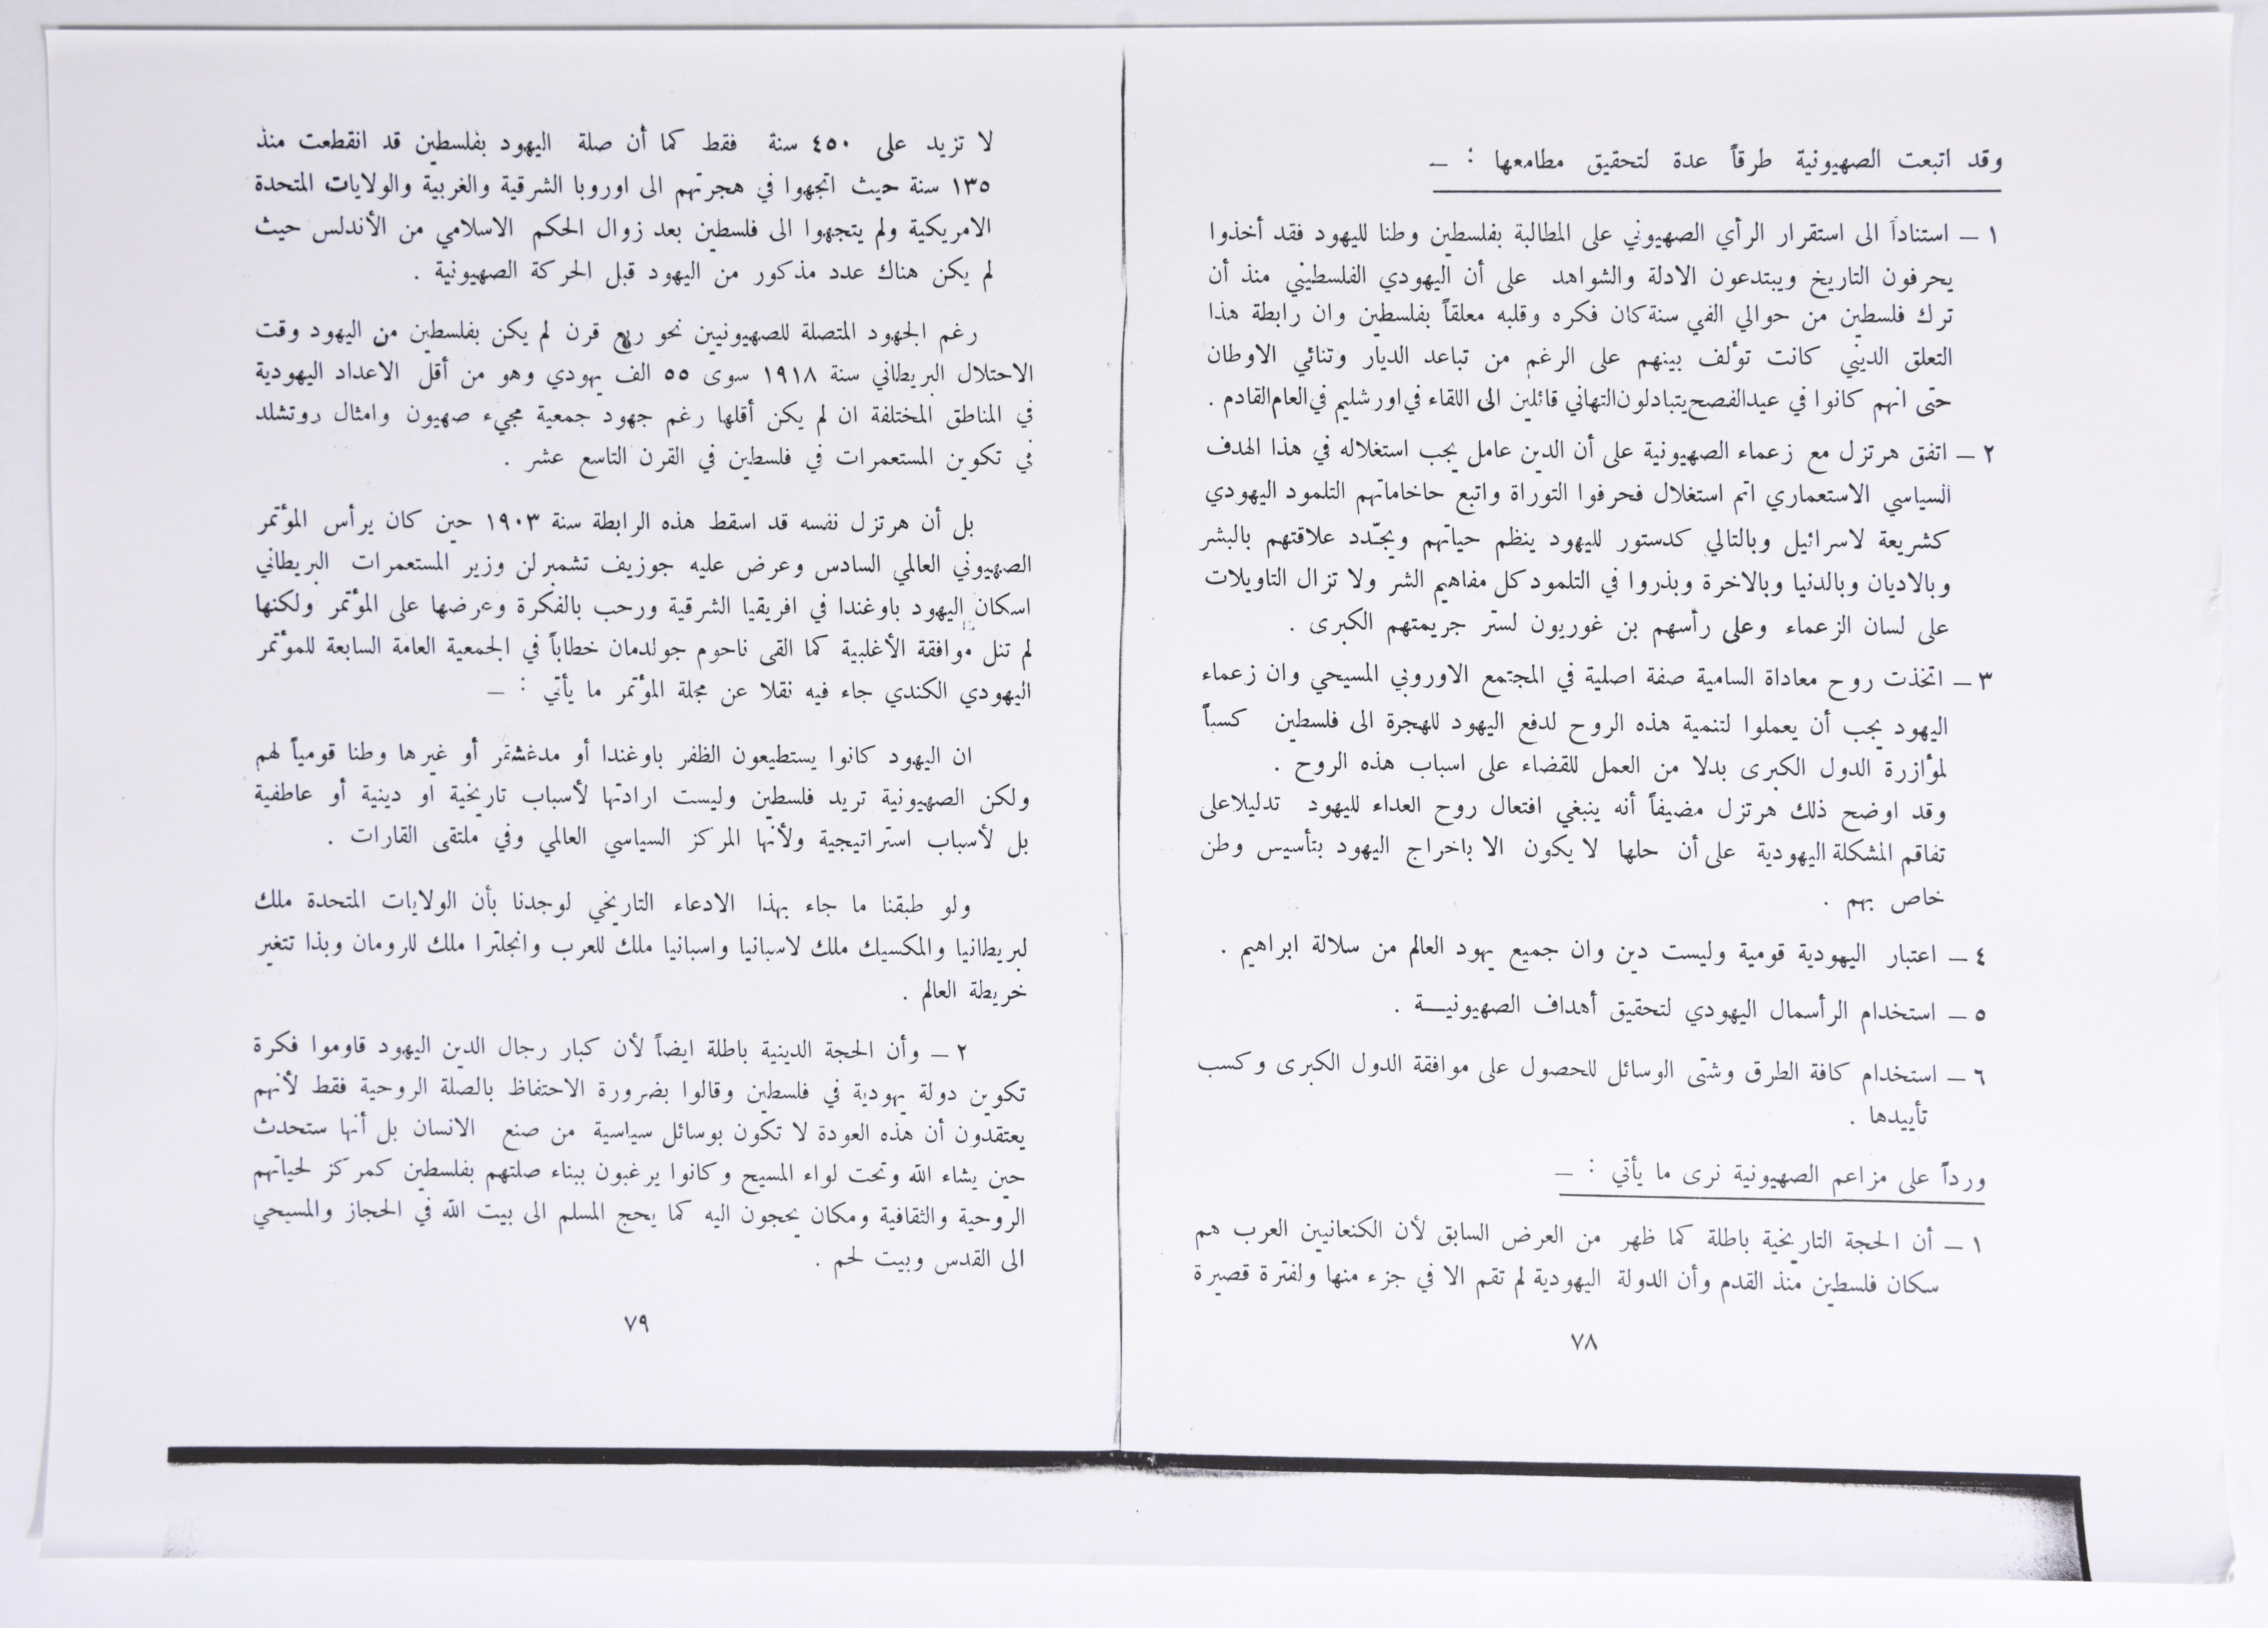 وقد اتبعت الصهيونية طرقاً عدة لتحقيق مطامعها : —
١ — استناداً الى استقرار الرأي الصهيوني على المطالبة بفلسطين وطنا لليهود فقد أخذوا
يحرفون التاريخ ويبتدعون الادلة والشواهد على أن اليهودي الفلسطيني منذ أن
ترك فلسطين من حوالي الفي سنة كان فكره وقلبه معلقاً بفلسطين وان رابطة هذا
التعلق الديني كانت تؤلف بينهم على الرغم من تباعد الديار وتنائي الاوطان
حتى انهم كانوا في عيد الفصح يتبادلون التهاني قائلين الى اللقاء في اورشليم في العام القادم .
٢ — اتفق هرتزل مع زعماء الصهيونية على أن الدين عامل يجب استغلاله في هذا الهدف
السياسي الاستعماري اتم استغلال فحرفوا التوراة واتبع حاخاماتهم التلمود اليهودي
كشريعة لاسرائيل وبالتالي كدستور لليهود ينظم حياتهم ويجدّد علاقتهم بالبشر
وبالاديان وبالدنيا وبالاخرة وبذروا في التلمود كل مفاهيم الشر ولا تزال التاويلات
على لسان الزعماء وعلى رأسهم بن غوريون لستر جريمتهم الكبرى .
٣ — اتخذت روح معاداة السامية صفة اصلية في المجتمع الاوروبي المسيحي وان زعماء
اليهود يجب أن يعملوا لتنمية هذه الروح لدفع اليهود للهجرة الى فلسطين كسباً
لمؤازرة الدول الكبرى بدلا من العمل للقضاء على اسباب هذه الروح .
وقد اوضح ذلك هرتزل مضيفاً أنه ينبغي افتعال روح العداء لليهود تدليلا على
تفاقم المشكلة اليهودية على أن حلها لا يكون الا باخراج اليهود بتأسيس وطن
خاص بهم .
٤ — اعتبار اليهودية قومية وليست دين وان جميع يهود العالم من سلالة ابراهيم .
٥ — استخدام الرأسمال اليهودي لتحقيق أهداف الصهيونيـــة .
٦ — استخدام كافة الطرق وشتى الوسائل للحصول على موافقة الدول الكبرى وكسب
تأييدها .
ورداً على مزاعم الصهيونية نرى ما يأتي : —
١ — أن الحجة التاريخية باطلة كما ظهر من العرض السابق لأن الكنعانيين العرب هم
سكان فلسطين منذ القدم وأن الدولة اليهودية لم تقم الا في جزء منها ولفترة قصيرة
٧٨
لا تزيد على ٤٥٠ سنة فقط كما أن صلة اليهود بفلسطين قد انقطعت منذ
١٣٥ سنة حيث اتجهوا في هجرتهم الى اوروبا الشرقية والغربية والولايات المتحدة
الامريكية ولم يتجهوا الى فلسطين بعد زوال الحكم الاسلامي من الأندلس حيث
لم يكن هناك عدد مذكور من اليهود قبل الحركة الصهيونية .
رغم الجهود المتصلة للصهيونيين نحو ربع قرن لم يكن بفلسطين من اليهود وقت
الاحتلال البريطاني سنة ١٩١٨ سوى ٥٥ الف يهودي وهو من أقل الاعداد اليهودية
في المناطق المختلفة ان لم يكن أقلها رغم جهود جمعية مجيء صهيون وامثال روتشلد
في تكوين المستعمرات في فلسطين في القرن التاسع عشر .
بل أن هرتزل نفسه قد اسقط هذه الرابطة سنة ١٩٠٣ حين كان يرأس المؤتمر
الصهيوني العالمي السادس وعرض عليه جوزيف تشمبرلن وزير المستعمرات البريطاني
اسكان اليهود باوغندا في افريقيا الشرقية ورحب بالفكرة وعرضها على المؤتمر ولكنها
لم تنل موافقة الأغلبية كما القى ناحوم جولدمان خطاباً في الجمعية العامة السابعة للمؤتمر
اليهودي الكندي جاء فيه نقلا عن مجلة المؤتمر ما يأتي : —
ان اليهود كانوا يستطيعون الظفر باوغندا أو مدغشتمر أو غيرها وطنا قومياً لهم
ولكن الصهيونية تريد فلسطين وليست ارادتها لأسباب تاريخية او دينية أو عاطفية
بل لأسباب استراتيجية ولأنها المركز السياسي العالمي وفي ملتقى القارات .
ولو طبقنا ما جاء بهذا الادعاء التاريخي لوجدنا بأن الولايات المتحدة ملك
لبريطانيا والمكسيك ملك لاسبانيا واسبانيا ملك للعرب وانجلترا ملك للرومان وبذا تتغير
خريطة العالم .
٢ — وأن الحجة الدينية باطلة ايضاً لأن كبار رجال الدين اليهود قاوموا فكرة
تكوين دولة يهودية في فلسطين وقالوا بضرورة الاحتفاظ بالصلة الروحية فقط لأنهم
يعتقدون أن هذه العودة لا تكون بوسائل سياسية من صنع الانسان بل أنها ستحدث
حين يشاء الله وتحت لواء المسيح وكانوا يرغبون ببناء صلتهم بفلسطين كمركز لحياتهم
الروحية والثقافية ومكان يحجون اليه كما يحج المسلم الى بيت الله في الحجاز والمسيحي
الى القدس وبيت لحم .
٧٩